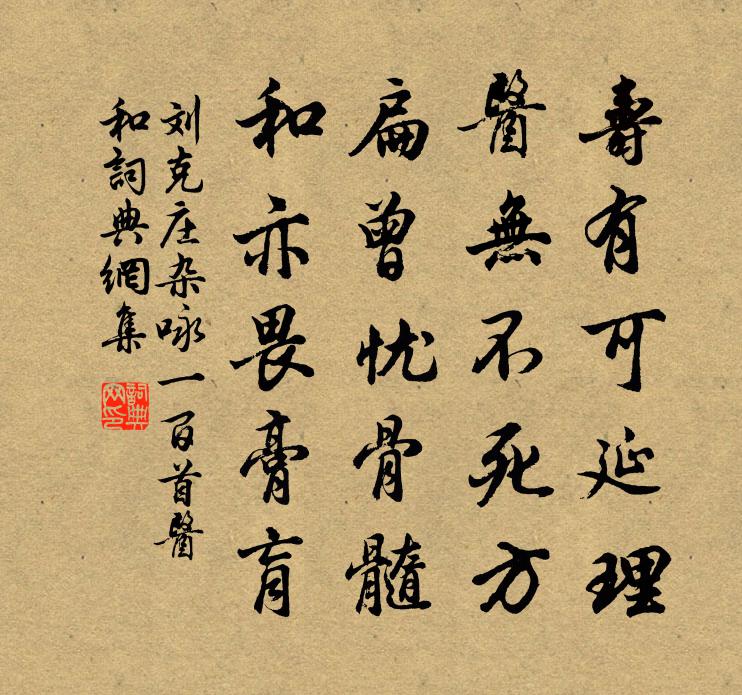 壽有可延理
醫無不死方
扁曾忧骨髓
和亦畏膏肓
刘克庄杂咏一百首醫
和詞典網集
詞典网印